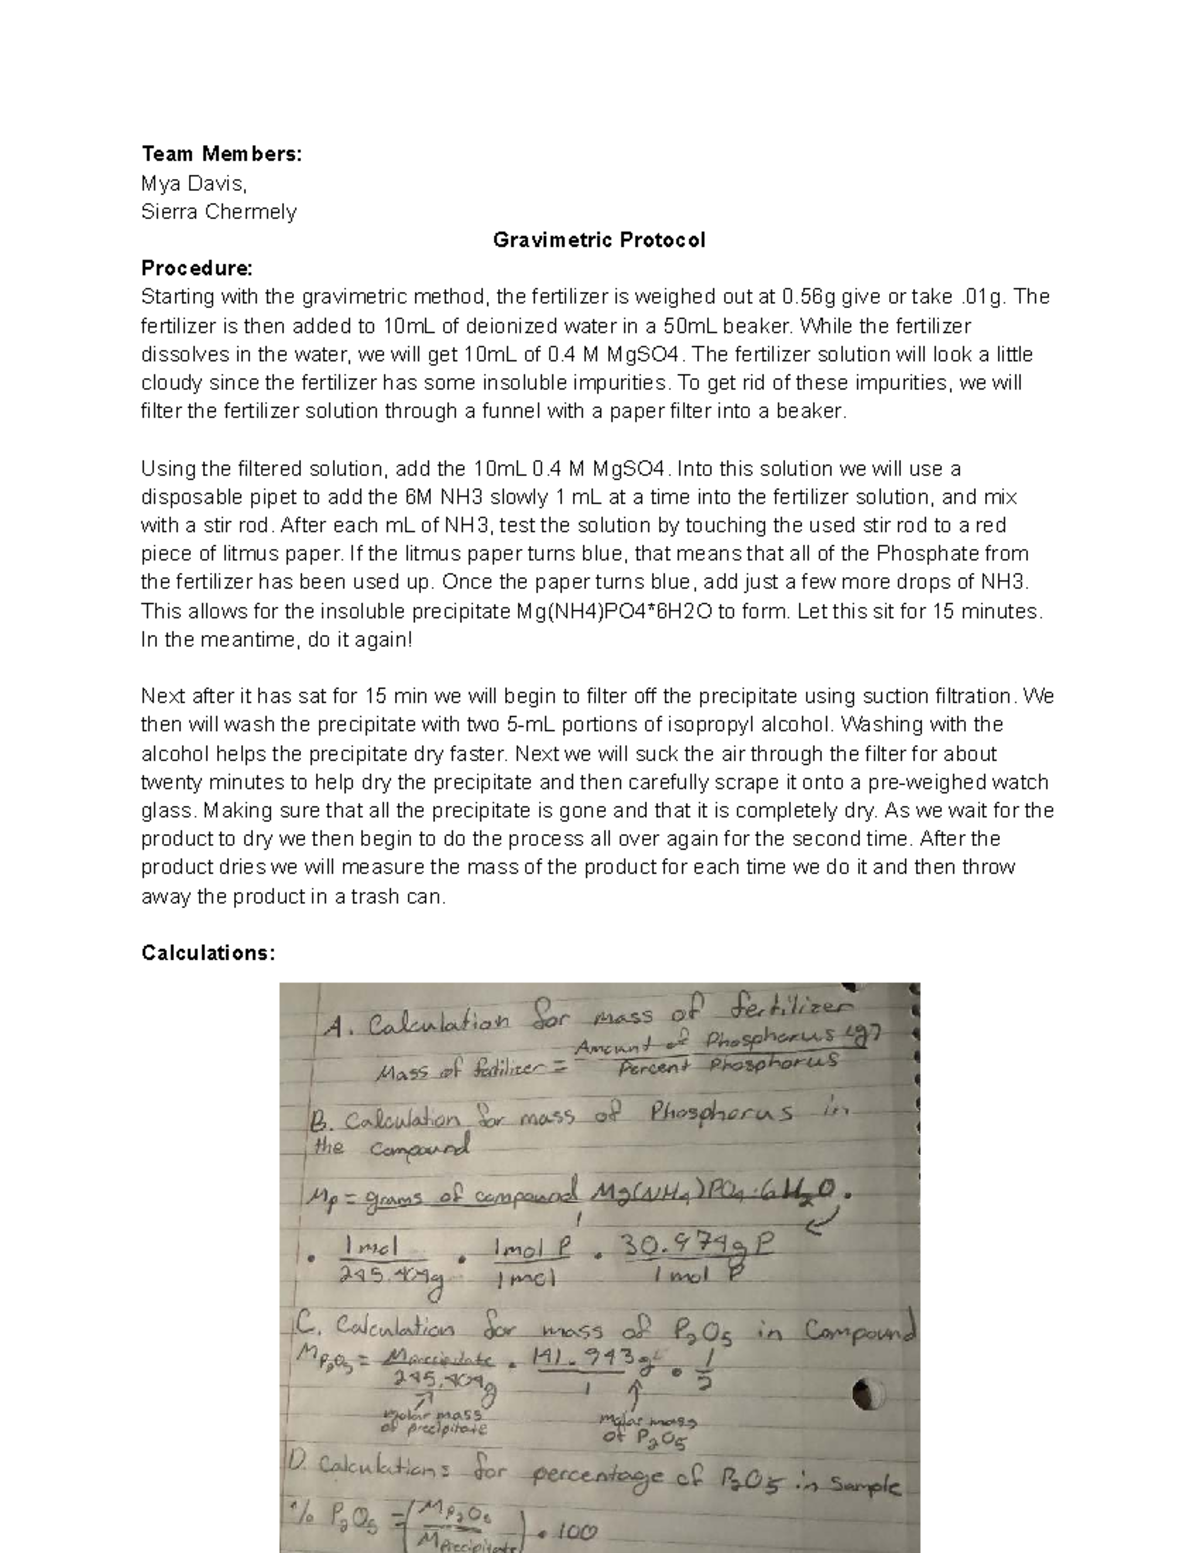 Team Members:
Mya Davis,
Sierra Chermely
Gravimetric Protocol
Procedure:
Starting with the gravimetric method, the fertilizer is weighed out at 0.56g give or take .01g. The
fertilizer is then added to 10mL of deionized water in a 50mL beaker. While the fertilizer
dissolves in the water, we will get 10mL of 0.4 M MgSO4. The fertilizer solution will look a little
cloudy since the fertilizer has some insoluble impurities. To get rid of these impurities, we will
filter the fertilizer solution through a funnel with a paper filter into a beaker.
Using the filtered solution, add the 10mL 0.4 M MgSO4. Into this solution we will use a
disposable pipet to add the 6M NH3 slowly 1 mL at a time into the fertilizer solution, and mix
with a stir rod. After each mL of NH3, test the solution by touching the used stir rod to a red
piece of litmus paper. If the litmus paper turns blue, that means that all of the Phosphate from
the fertilizer has been used up. Once the paper turns blue, add just a few more drops of NH3.
This allows for the insoluble precipitate Mg(NH4)PO4*6H2O to form. Let this sit for 15 minutes.
In the meantime, do it again!
Next after it has sat for 15 min we will begin to filter off the precipitate using suction filtration. We
then will wash the precipitate with two 5-mL portions of isopropyl alcohol. Washing with the
alcohol helps the precipitate dry faster. Next we will suck the air through the filter for about
twenty minutes to help dry the precipitate and then carefully scrape it onto a pre-weighed watch
glass. Making sure that all the precipitate is gone and that it is completely dry. As we wait for the
product to dry we then begin to do the process all over again for the second time. After the
product dries we will measure the mass of the product for each time we do it and then throw
away the product in a trash can.
Calculations:
A. Calculation for mass of fertilizer
Mass of fertilizer = Amount of Phosphorus (g) / Percent Phosphorus
B. Calculation for mass of Phosphorus in
the compound
Mp = grams of compound Mg(NH4)PO4·6H2O / 1 ·
· 1mol / 245.404g · 1mol P / 1mol · 30.974g P / 1mol P
C. Calculation for mass of P2O5 in Compound
MP2O5 = Mprecipitate / 245.404g · 141.943g / 1 · 1/2
molar mass
of precipitate
molar mass
of P2O5
D. Calculations for percentage of P2O5 in sample
% P2O5 = (MP2O5 / MPrecipitate) · 100